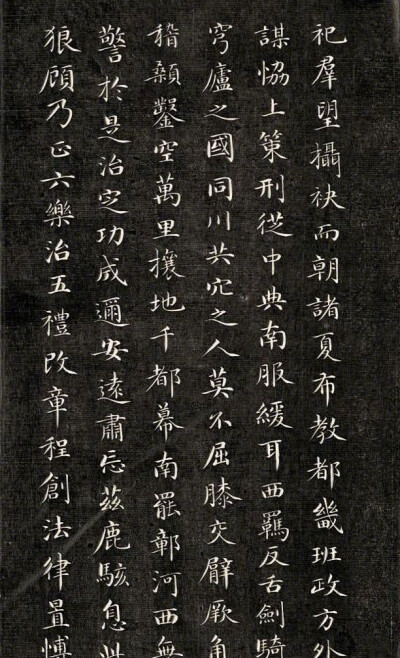 祀羣望攝袂而朝諸夏布教都畿班政方外
謀恊上策刑從中典南服緩耳西羈反舌劒騎
穹廬之國同川共穴之人莫不屈膝交臂厥角
稽顙鑿空萬里攘地千都幕南罷鄣河西無
警於是治定功成邇安遠肅忘茲鹿駭息此
狼顧乃正六樂治五禮改章程創法律置愽